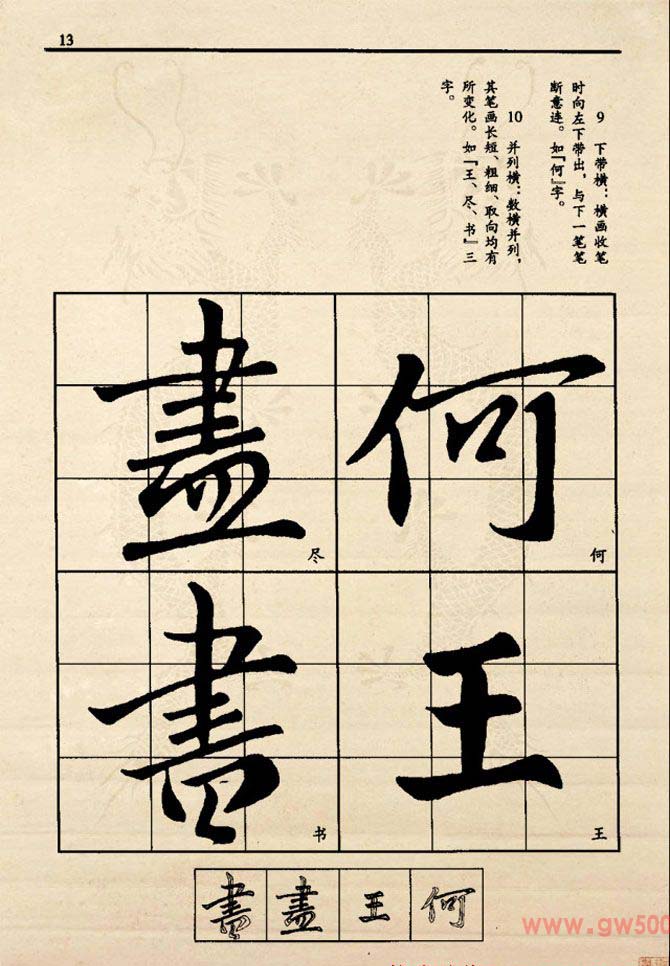 13
9 下带横：横画收笔
时向左下带出，与下一笔笔
断意连。如『何』字。
10 并列横：数横并列，
其笔画长短、粗细、取向均有
所变化。如『王、尽、书』三
字。
何
何
王
王
盡
尽
書
书
何
王
盡
書
www.gw500